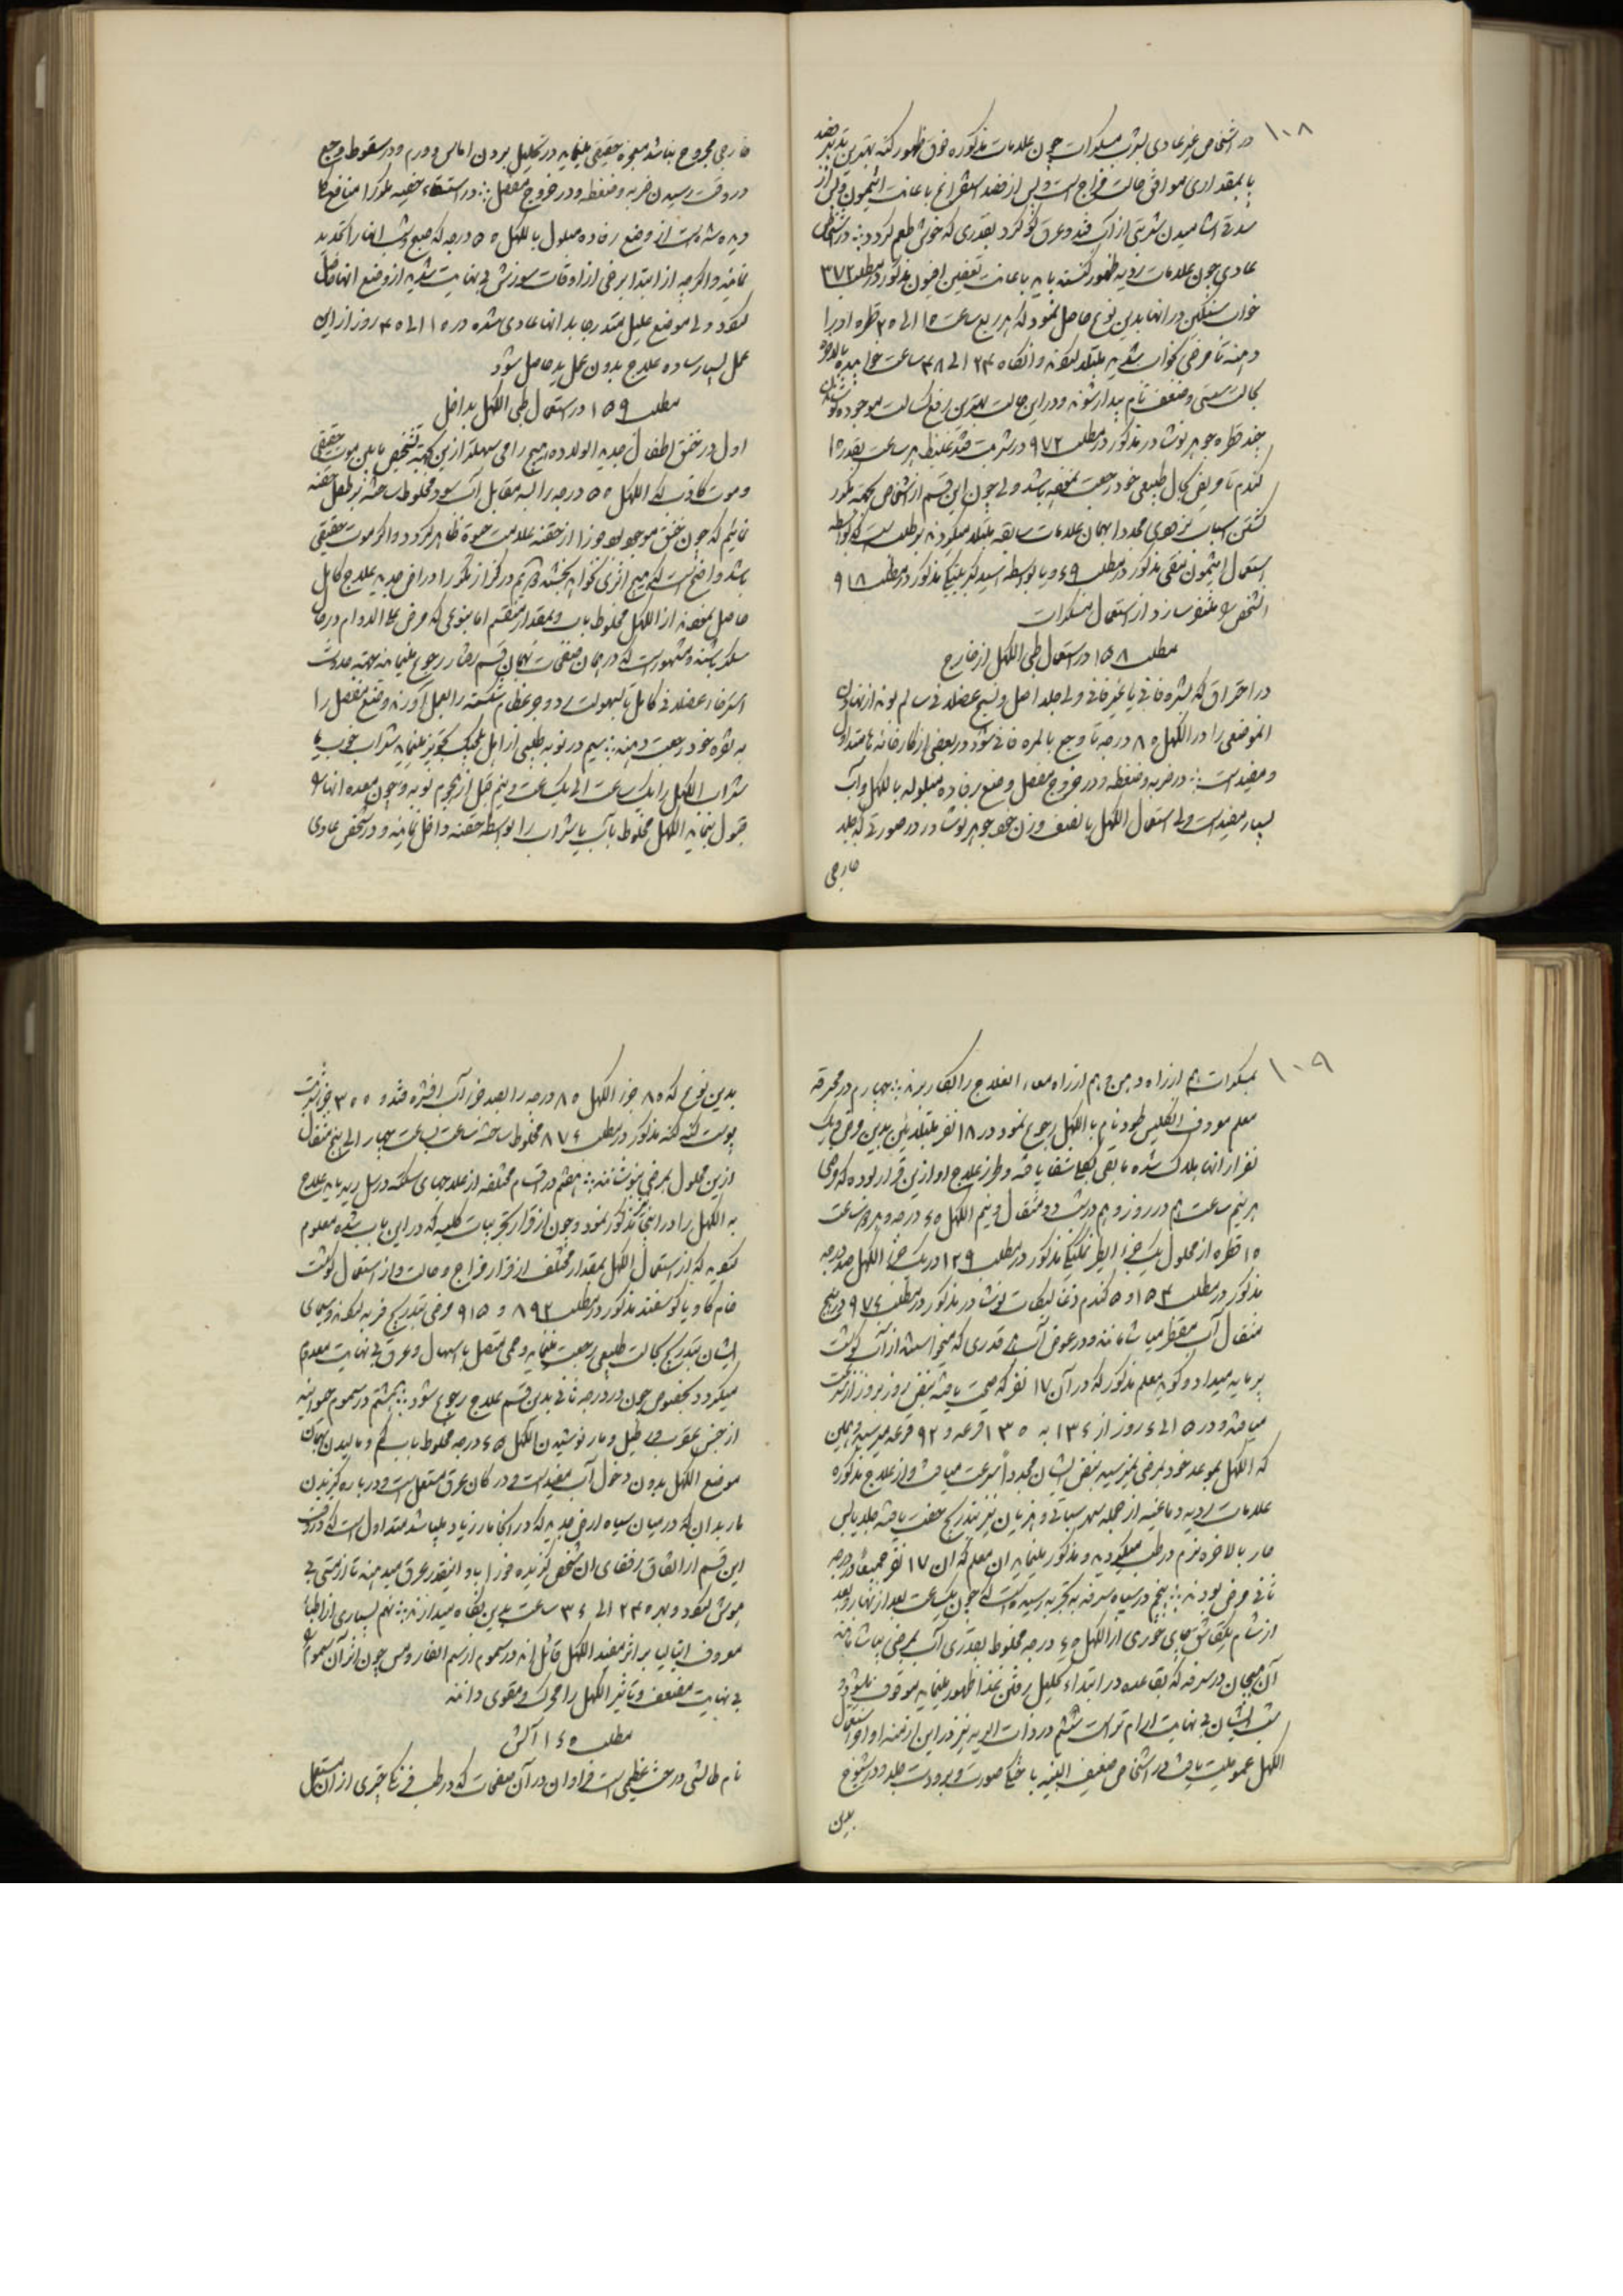 ۱۰۸
در اشخاص غیر عادی بشرب مسکرات چون علامات مذکوره فوق ظهور کند بهترین تدبیر فصد
با بمقداری موافق حالت مزاج است و پس از فصد استفراغ باعانت
آشامیدن شربتی از آب قند و عرق بقدری که خوش طعم گردد در اشخاص
عادی چون علامات ردیه ظهور کنند باید باعانت افیون مذکور در مطلب ۳۷۲
خواب سنگین در آنها بدین نوع حاصل نمود که هر ربع ساعت ۱۵ الی ۲۰ قطره او را
دهند تا مرضی بخواب شدید مبتلا شوند و آنگاه ۲۴ الی ۴۸ ساعت خوابیده بالاخره
بحالت سستی و ضعف تام بیدار شوند و در این حالت بهترین رفع کسالت موجوده
چند قطره جوهر نوشادر مذکور در مطلب ۹۷۲ در شربت قند غلیظ هر ساعت بقدر ۱۵
گندم تا مریض بحال طبیعی خود رجعت نموده باشد ولی چون این قسم از اشخاص
مجددا بهمان علامات سابقه مبتلا میگردند بواسطه
استعمال منقی مذکور در مطلب و یا بواسطه اسید مذکور در مطلب ۹۱۸
شخص را متنفر سازد از استعمال مسکرات
مطلب ۱۵۸ در استعمال طبی الکهل از خارج
در احتراق که بشره فانی یا غیر فانی ولی جلد اصل و نسج عضلانی سالم بود
الموضعی را در الکهل ۸۰ درجه تا وجع بالمره فانی شود در بعضی از کارخانه ها متداول
و مفید است در ضربه و ضغطه و در خروج مفصل وضع رفاده مبلوله بالکهل و آب
بسیار مفید است ولی استعمال الکهل با نصف وزن خود جوهر نوشادر در صورتی که جلد
خارجی
خارجی مجروح نباشد معجزه حقیقی مینماید در تحلیل بردن آماس و ورم و در سقوط وجع
در وقت رسیدن ضربه و ضغطه و در خروج مفصل در استسقاء خصیه مکررا منافع
دیده شده است از وضع رفاده مبلول بالکهل ۵۰ درجه که صبح و شب آنها را تجدید
نمایند و اگرچه از ابتدا برخی از اوقات سوزش بی نهایت شدید از وضع آنها حاصل
شود ولی موضع علیل بتدریج بدانها عادی شده در ۱۵ الی ۴۰ روز از این
عمل بسیار ساده علاج بدون عمل ید حاصل شود
مطلب ۱۵۹ در استعمال طبی الکهل بداخل
اول در خنق اطفال جدید الولاده هیچ راهی سهلتر از این بجهة تشخیص مابین موت حقیقی
و موت کاذب که الکهل ۵۰ درجه را سه مقابل آب سرد مخلوط ساخته بر طفل حقنه
نمائیم که چون خنق موجود بود فورا از حقنه علامت حیوة ظاهر گردد و اگر موت حقیقی
باشد واضح است که هیچ اثری نخواهد بخشید دویم در کزاز مکررا در امراض جدیده علاج کامل
حاصل نموده اند از الکهل مخلوط بآب و بمقدار منقسم اما بنوعی که مرضی علی الدوام در حال
سکر باشند و مشهور است که در همان صفحات بهمان قسم رفتار رجوع مینمایند بجهة حدوث
استرخاء عضلانی کامل تا بسهولت رد و جبر عظام شکسته را بعمل آورند و وضع مفصل را
بنقره خود رجعت دهند سیم در نوبه طبیبی از اهل بلجیک تجویز مینماید شراب خوب یا
شراب الکهل را یک ساعت الی یک ساعت و نیم قبل از هجوم نوبه و چون معده آنها را
قبول ننماید الکهل مخلوط بآب یا شراب را بواسطه حقنه داخل نمایند و در شخص عادی
۱۰۹
بمسکرات هم از راه دهن و هم از راه معاء العلاج را بکار برند چهارم در محرقه
معلم معروف انگلیس طود نام با الکهل رجوع نمود در ۱۸ نفر مبتلایان بدین مرض و یک
نفر از آنها هلاک شده مابقی بکلی شفا یافته و طرز علاج او از این قرار بوده که مرضی
هر نیم ساعت هم در روز و هم در شب دو مثقال و نیم الکهل درجه و هر دو ساعت
۱۵ قطره از محلول یک جزء مذکور در مطلب ۱۲۹ در یک جزء الکهل صد درجه
مذکور در مطلب ۱۵۴ و ۵ گندم نوشادر مذکور در مطلب ۹۷۴ در پنج
مثقال آب مقطر میاشامند و در عوض آب قدری که میخواستند از آب گوشت
بر مایه میداد و گوید معلم مذکور که در آن ۱۷ نفر که صحت یافته نبض روز بروز از سرعت
میافتد و در ۵ الی ۶ روز از ۱۳۶ به ۱۳۰ قرعه و ۹۲ قرعه میرسید و همین
که الکهل بموعد خود بمرضی نمیرسید نبض ایشان مجددا سرعت مییافت و از علاج مذکوره
علامات ردیه دماغیه از جمله سهر سباتی و هذیان نیز بتدریج خفت یافته جلد یابس
حار بالاخره نرم و رطب میگردید و مذکور مینماید آن معلم که آن ۱۷ نفر جمیعا در درجه
ثانی مرض بودند پنجم در سیاه سرفه به تجربه رسیده است که چون یکساعت بعد از نهار و بعد
از شام یک قاشق چای خوری از الکهل درجه مخلوط بقدری آب بمرضی بیاشامند
آن هیجان در سرفه که بقاعده در ابتداء تحلیل رفتن غذا ظهور مینماید موقوف میشود و
شب ایشان بی نهایت آرام تر است ششم در ذات الریه نیز در این ازمنه اواخر استعمال
الکهل عمومیت یافت در اشخاص ضعیف البنیه با صورت و برودت جلد و در شیوخ
بدین
بدین نوع که ۸۰ جزء الکهل ۸۵ درجه را بصد جزء آب افشره قند و ۳۰۰ جزء شربت
پوست گنه گنه مذکور در مطلب ۸۷۶ مخلوط ساخته ساعت بساعت چهار الی پنج مثقال
از این محلول بمرضی بنوشانند هفتم در اقسام مختلفه از علاجهای سکته در سل ریه باید علاج
به الکهل را در اینجا نیز مذکور نمود و چون از قرار تجربیات کلیه که در این باب شده معلوم
گوید که از استعمال الکهل بمقدار مختلف از قرار مزاج و حالت و از استعمال گوشت
خام گاو یا گوسفند مذکور در مطلب ۸۹۲ و ۹۱۵ مرضی بتدریج فربه میشوند و سیمای
ایشان بتدریج بحالت طبیعی رجعت مینماید و حمی متصل با اسهال و عرق بی نهایت معدوم
میگردد بخصوص چون در درجه ثانی بدین قسم علاج رجوع شود هشتم در سموم حیوانیه
از جنس عقرب و رطیل و مار نوشیدن الکهل ۴۵ درجه مخلوط بآب کم و مالیدن بهمان
موضع الکهل بدون دخول آب مفید است و در مکان عرق مستعمل است و در باره گزیدن
مار بدان که در میان سیاه ارض جدید که در آنجا مار زیاد میباشد متداول است که در وقت
این قسم از اتفاق رفقای آن شخص گزیده فورا باو اینقدر عرق میدهند تا از مستی بی
هوش شود و بهر ۲۴ الی ۳۶ ساعت بدین نگاه میدارند نهم بسیاری از اطباء
معروف ایتالیا بر اثر مفید الکهل قائل اند در سموم از سم الفار و مس چون اثر آن سموم را
بی نهایت مضعف و تاثیر الکهل را محرک و مقوی دانند
مطلب ۱۶۰ آلش
نام طالشی درخت عظیمی است فراوان در آن صفحات که در طب فرنگ چیزی از آن مستعمل